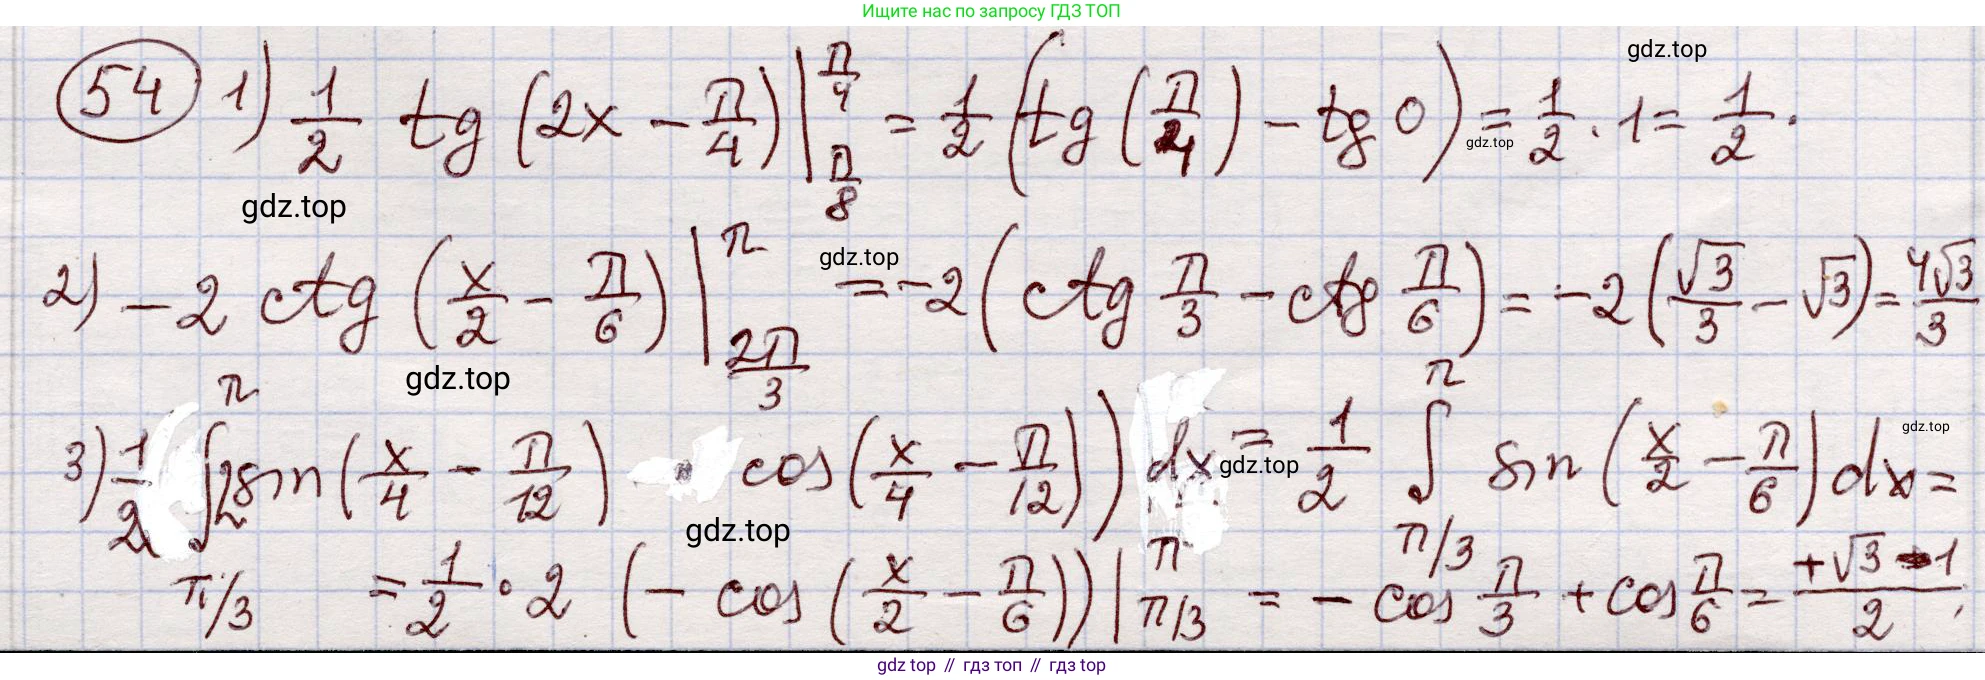 Ищите нас по запросу ГДЗ ТОП
54 1) 1/2 tg (2x − π/4) |_{π/8}^{π/4} = 1/2 (tg (π/4) − tg 0) = 1/2 · 1 = 1/2 .
gdz.top
gdz.top
gdz.top
2) −2 ctg (x/2 − π/6) |_{2π/3}^{π} = −2 (ctg π/3 − ctg π/6) = −2 (√3/3 − √3) = 4√3/3
gdz.top
gdz.top
3) 1/2 ∫_{π/3}^{π} 2sin (x/4 − π/12) · cos (x/4 − π/12)) dx = 1/2 ∫_{π/3}^{π} sin (x/2 − π/6) dx =
gdz.top
gdz.top
gdz.top
= 1/2 · 2 (− cos (x/2 − π/6)) |_{π/3}^{π} = − cos π/3 + cos π/6 = (+√3 − 1)/2 ;
gdz.top // гдз топ // гдз top